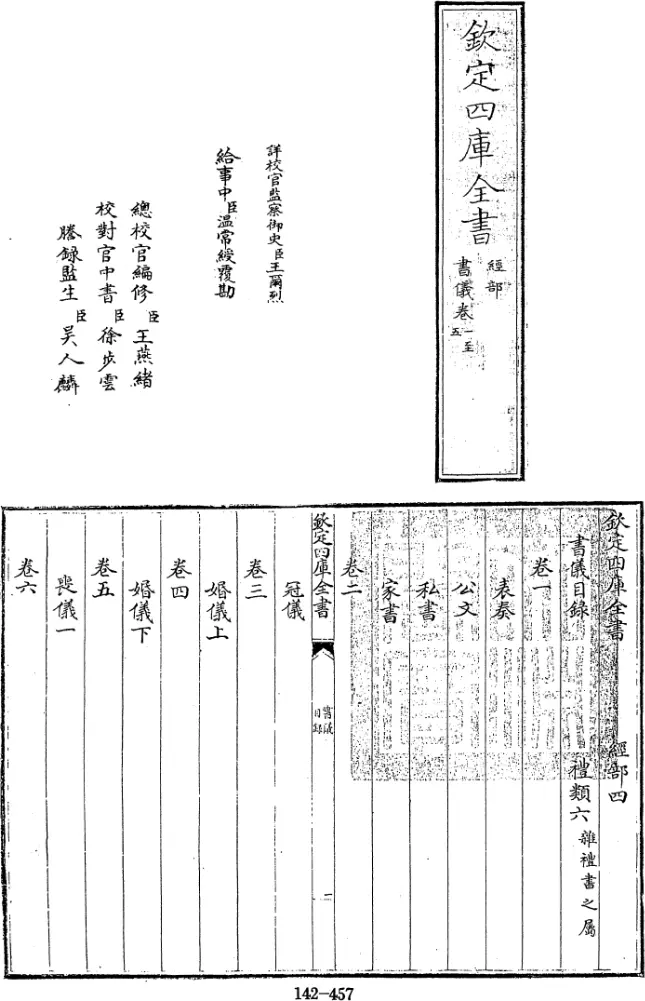 欽定四庫全書
經部
書儀卷一至
五
詳校官監察御史臣王爾烈
給事中臣溫常綬覆勘
總校官編修臣王燕緒
校對官中書臣徐步雲
謄錄監生臣吴人麟
欽定四庫全書 經部四
書儀目錄 禮類六雜禮書之屬
卷一
表奏
公文
私書
家書
卷二
欽定四庫全書
書儀
目錄
一
冠儀
卷三
婚儀上
卷四
婚儀下
卷五
喪儀一
卷六
142-457